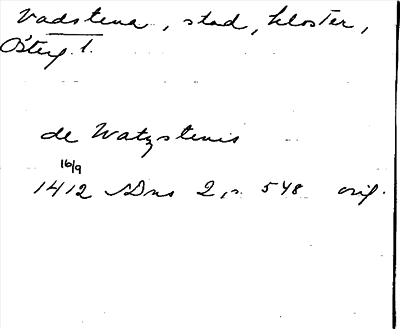 Vadstena, stad, kloster,
Österg. l.
de Watzstenis
16/9
1412 SDns 2, s. 548 orig.